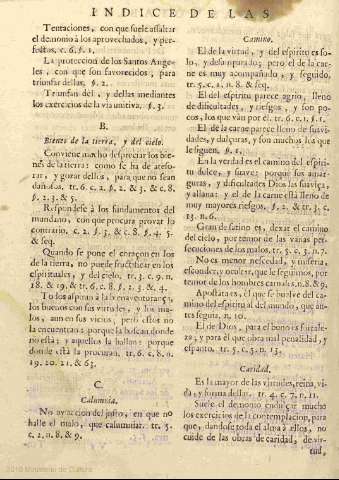 INDICE DE LAS
Tentaciones, con que suele assaltar
el demonio à los aprovechados, y per-
fectos. c. 6. §. 1.
La proteccion de los Santos Ange-
les, con que son favorecidos, para
triunfar dellas. §. 2.
Triunfan del, y dellas mediantes
los exercicios de la via unitiva. §. 3.
B.
Bienes de la tierra, y del cielo.
Conviene mucho despreciar los bie-
nes de la tierra: como se ha de atesо-
rar, y gozar dellos, para que no sean
dañosos. tr. 6. c. 2. §. 2. & 3. & c. 8.
§. 2. 3. & 5.
Responde se à los fundamentos del
mundano, con que procura provar lo
contrario. c. 2. §. 3. & c. 8. §. 4. 5.
& seq.
Quando se pone el coraçon en los
de la tierra, no puede fructificar en los
espirituales, y del cielo. tr. 3. c. 9. n.
18. & 19. & tr. 6. c. 8. §. 2. 3. & 4.
Todos aspiran à la bienaventurança:
los buenos con sus virtudes, y los ma-
los, aun en sus vicios; pero estos no
la encuentran: porque la buscan donde
no està; y aquellos la hallan: porque
donde està la procuran. tr. 6. c. 8. n.
19. 20. 21. & 63.
C.
Calumnia.
No ay accion del justo, en que no
halle el malo, que calumniar. tr. 5.
c. 2. n. 8. & 9.
Camino.
El de la virtud, y del espiritu es so-
lo, y desamparado; pero el de la car-
ne es muy acompañado, y seguido.
tr. 5. c. 2. n. 8. & seq.
El del espiritu parece agrio, lleno
de dificultades, y riesgos, y son po-
cos, los que vàn por el. tr. 6. c. 1. §. 1.
El de la carne parece lleno de suavi-
dades, y dulçuras, y son muchos los que
le siguen. §. 1.
En la verdad es el camino del espiri-
tu dulce, y suave: porque sus amar-
guras, y dificultades Dios las suaviça,
y allana: y el de la carne està lleno de
muy mayores riesgos. §. 2. & tr. 3. c.
13. n. 6.
Gran desatino es, dexar el camino
del cielo, por temor de las varias per-
secuciones de los malos. tr. 5. c. 3. n. 7.
No es menor necedad, y tonteria,
esconder, y ocultar, que le seguimos, por
temor de los hombres carnales. n. 8. & 9.
Apostata es, el que se buelve del ca-
mino del espiritu al del mundo, que an-
tes seguia. n. 10.
El de Dios, para el bueno es fortale-
za; y para el que obra mal penalidad, y
espanto. tr. 5. c. 3. n. 13.
Caridad.
Es la mayor de las virtudes, reina, vi-
da, y forma dellas. tr. 4. c. 7. n. 11.
Suele el demonio endulçar mucho
los exercicios de la contemplacion, para
que, dandose toda el alma à ellos, no
cuide de las obras de caridad, de vir-
tud,
2010 Ministerio de Cultura